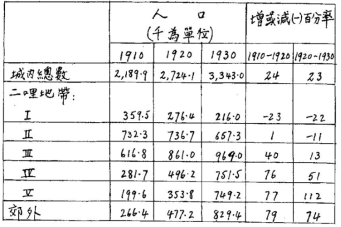 人口 增或減(-)百分率
(千為單位)
1910 1920 1930 1910-1920 1920-1930
城內總數 2,189.9 2,724.1 3,343.0 24 23
二哩地帶:
I 359.5 276.4 216.0 -23 -22
II 732.3 736.7 657.3 1 -11
III 616.8 861.0 969.0 40 13
IV 281.7 496.2 751.5 76 51
V 199.6 353.8 749.2 77 112
郊外 266.4 477.2 829.4 79 74